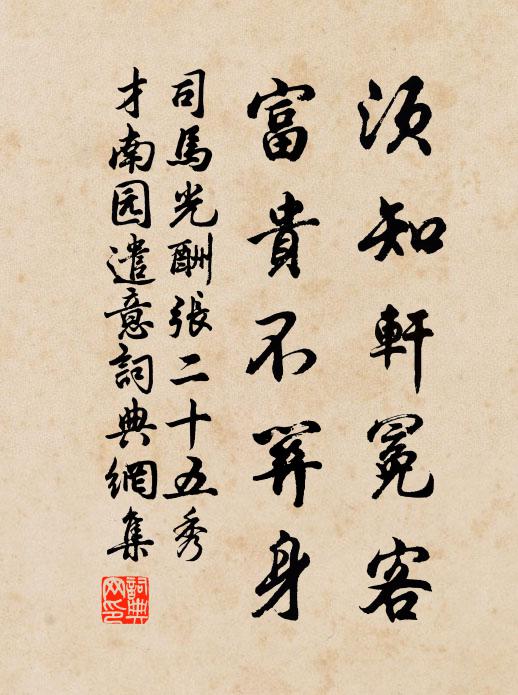 須知軒冕客
富貴不關身
司馬光酬張二十五秀
才南园遣意詞典網集
詞典
网印